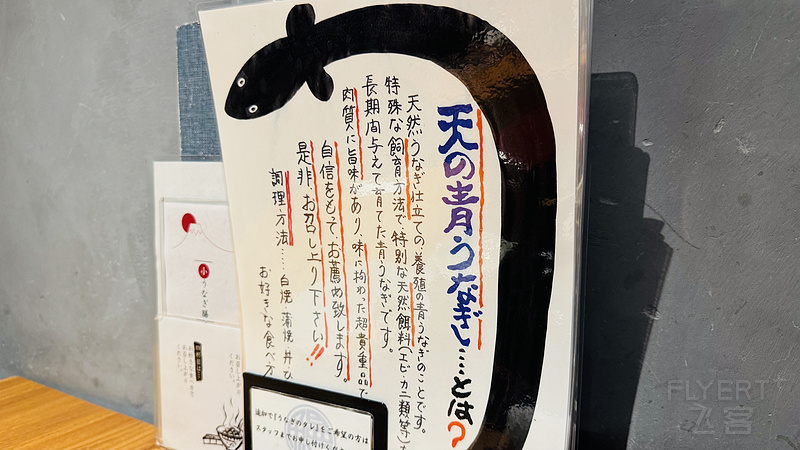 天の青うなぎ…とは?
天然うなぎ仕立ての、養殖の青うなぎのことです。
特殊な飼育方法で、特別な天然餌料(エビ・カニ類等)を
長期間与えて育てた青うなぎです。
肉質に旨味があり、味に拘わった超貴重品で
自信をもって、お薦め致します。
是非、お召し上り下さい!!
調理方法…‥白焼 蒲焼・丼
お好きな食べ方
小うなぎ膳
追加で『うなぎのタレ』をご希望の方は
スタッフまでお申し付けくだ
FLYERT
飞客